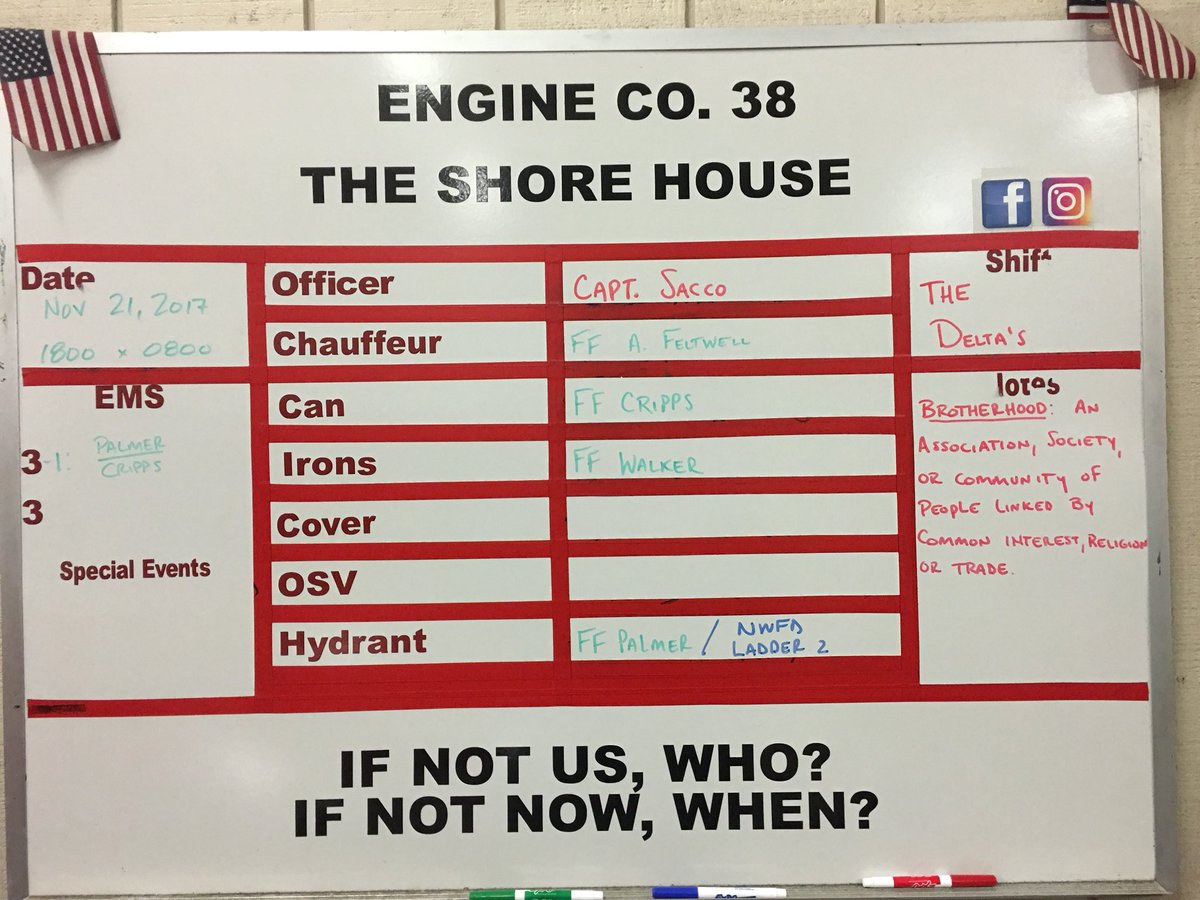 ENGINE CO. 38
THE SHORE HOUSE
f
Date
NOV 21, 2017
1800 x 0800
EMS
3-1: PALMER
CRIPPS
3
Special Events
Officer
CAPT. SACCO
Chauffeur
FF A. FELTWELL
Can
FF CRIPPS
Irons
FF WALKER
Cover
OSV
Hydrant
FF PALMER / NWFD
LADDER 2
Shift
THE
DELTA'S
Notes
BROTHERHOOD: AN
ASSOCIATION, SOCIETY,
OR COMMUNITY OF
PEOPLE LINKED BY
COMMON INTEREST, RELIGION
OR TRADE.
IF NOT US, WHO?
IF NOT NOW, WHEN?